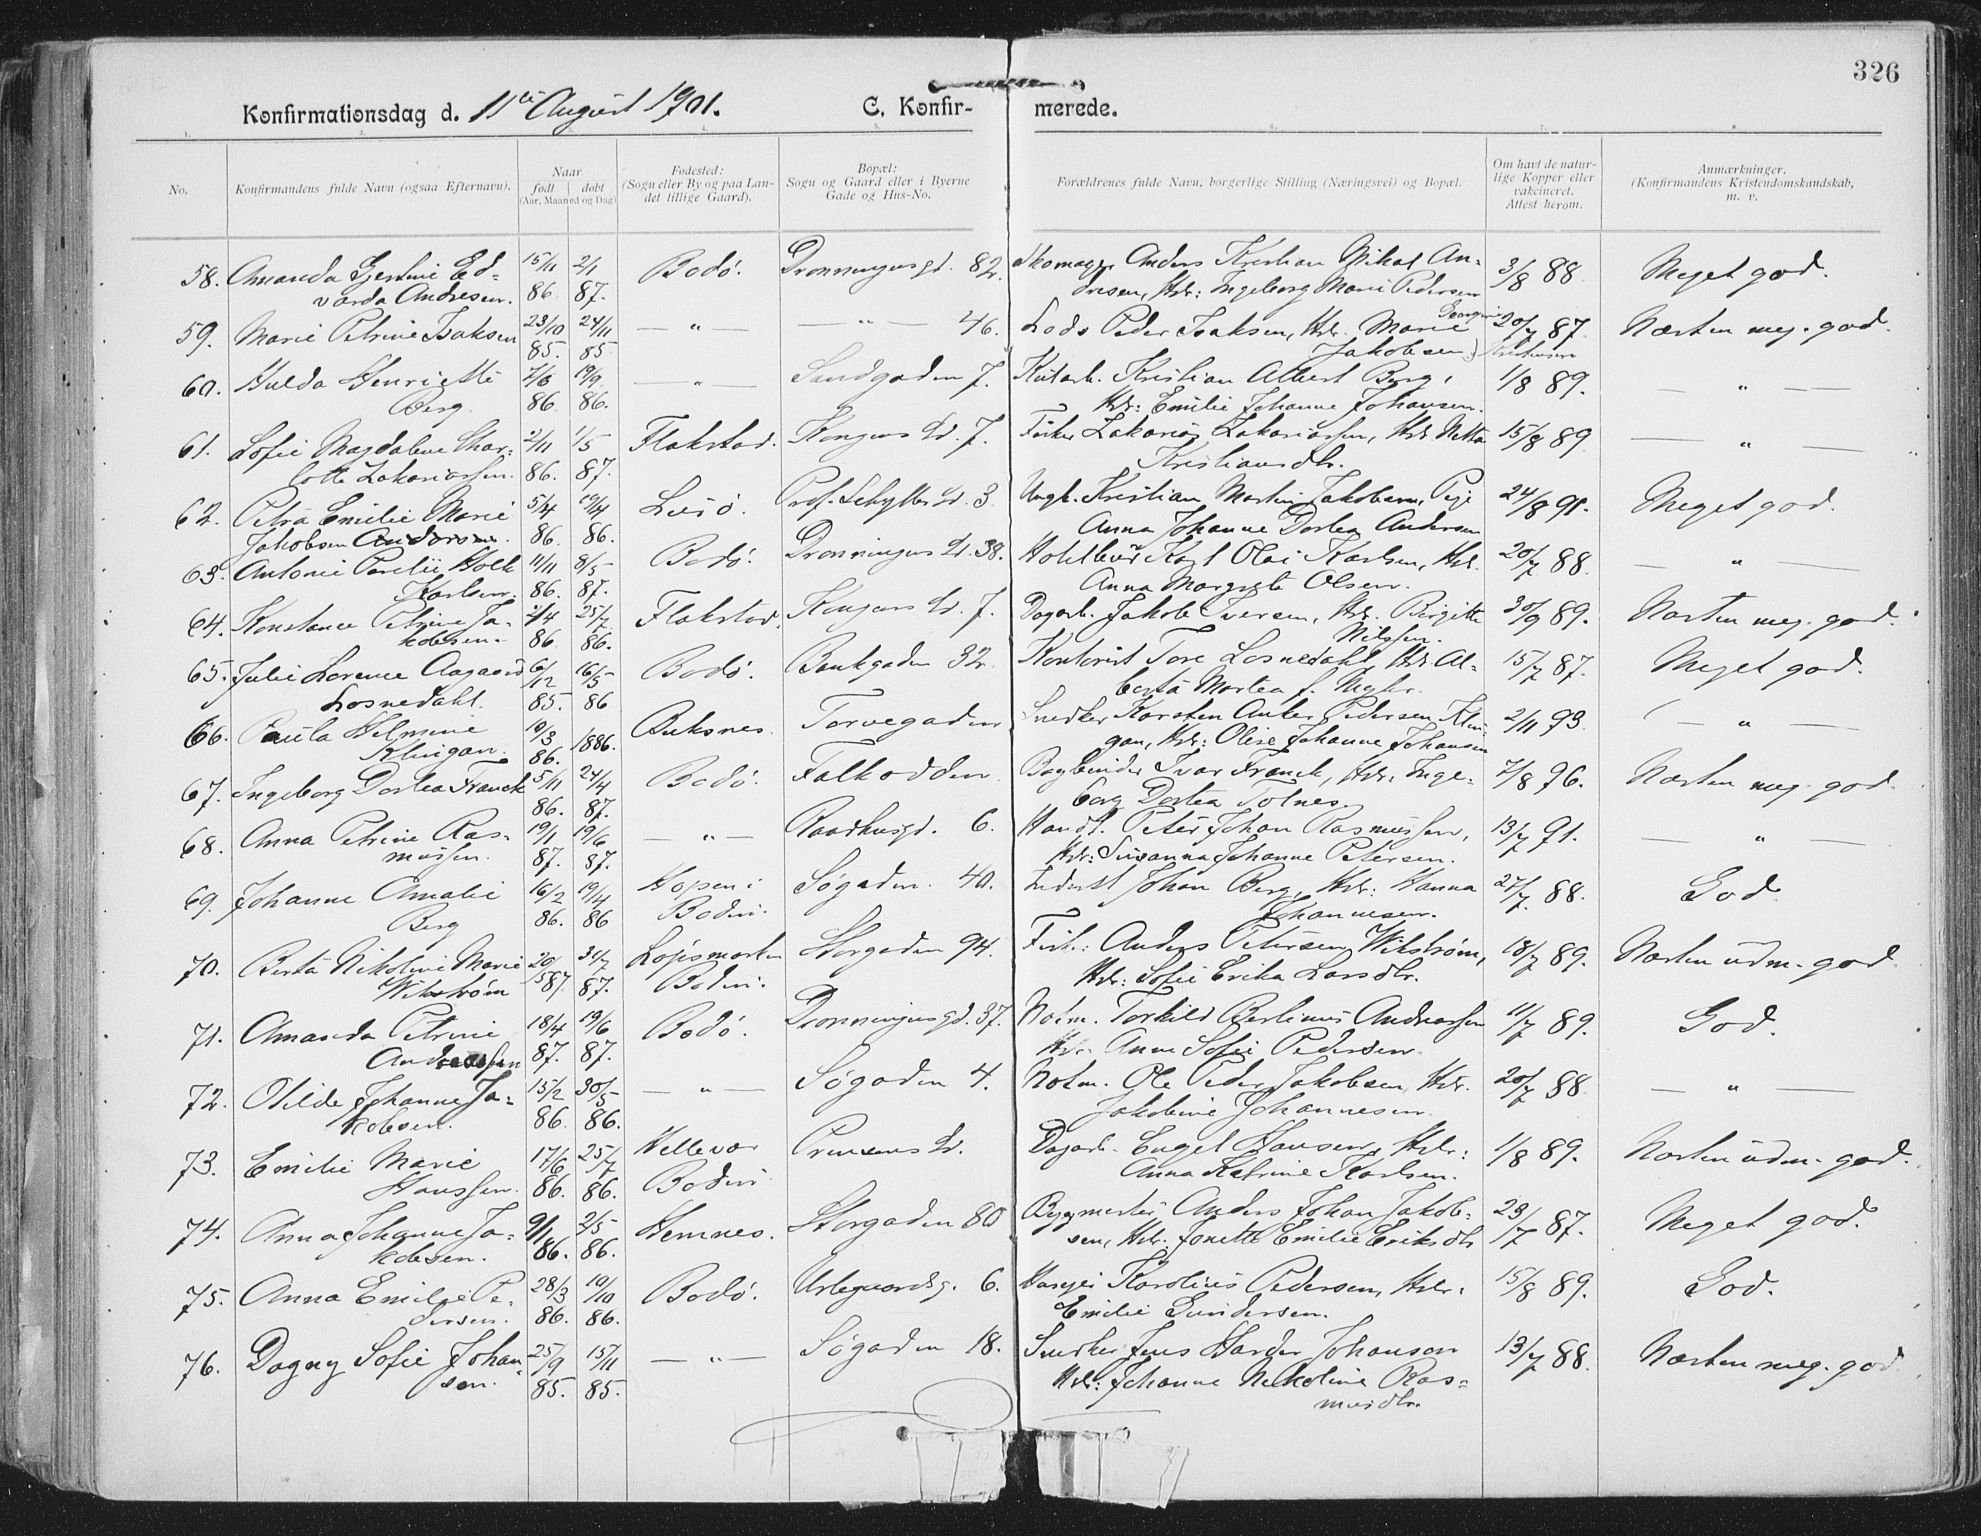 326
Konfirmationsdag d. 11te August 1901. C. Konfir- merede.
1. 2. 3. 4. 5. 6. 7. 8.
No. Konfirmandens fulde Navn (ogsaa Efternavn). Naar født døbt (Aar, Maaned og Dag) Fødested: (Sogn eller By og paa Landet tillige Gaard). Bopæl: Sogn og Gaard eller i Byerne Gade og Hus-No. Forældrenes fulde Navn, borgerlige Stilling (Næringsvei) og Bopæl. Om havt de naturlige Kopper eller vakcineret. Attest herom. Anmærkninger. (Konfirmandens Kristendomskundskab, m. v.
58. Amanda Gjertine Ed- 15/11 2/1 Bodø. Dronningensgd. 82. Skomager Anders Kristian Nikol An- 3/8 88 Meget god.
varda Andresen. 86 87. dresen, Hstr: Ingeborg Marie Pedersen
59. Marie Petrine Isaksen 23/10 24/11 — " — — " — 46. Lods Peder Isaksen, Hstr. Marie Georgine 20/7 87. Næsten meg. god.
85. 85 Jakobsen
60. Hulda Henriette 7/8 19/9 — " — Sandgaden 7. Kristian Albert Berg, 1/8 89. — " —
Berg 86 86. Hstr: Emilie Johanne Johansen.
61. Sofie Magdalene Char- 2/11 1/5 Flakstad. Kongens Gd. 7. Fisker Zakarias Zakariassen, Hstr Netta 15/8 89 — " —
lotte Zakariassen. 86. 87. Kristiansdtr.
62. Petra Emilie Marie 5/4 19/4 Lurø. Prof. Schyttes Gd. 3 Ungk. Kristian Martin Jakobsen, Pige 24/8 91. Meget god.
Jakobsen Andersen. 86. 86. Anna Johanne Dortea Andersen
63. Antonie Holk 11/11 8/5 Bodø. Dronningens Gd. 38. Karl Olai Karlsen, Hstr. 20/7 88. — " —
Karlsen. 86. 87. Anna Margrete Olsen.
64. Konstance Petrine Ja- 2/4 25/7 Flakstad. Kongens Gd. 7. Dagarb. Jakob Iversen, Hstr. Birgitte 30/9 89. Næsten meg. god.
kobsen. 86 86. Nilssen.
65. Julie Lorence Aagaard 6/12 16/5 Bodø. Bankgaden 32. Kontorist Tore Losnedahl, Hstr. Al- 15/7 87. Meget god.
Losnedahl. 85. 86 berta Martea f.
66. Paula Helmine 19/3 1886. Buksnes. Torvegaden Snedker Karsten Anker Pedersen Klin- 2/11 93. — " —
Klingan. 86. gan, Hstr: Olise Johanne Johansen
67. Ingeborg Dortea Franck 5/11 24/4 Bodø. Falkodden Bogbinder Ivar Franck, Hstr. Inge- 7/8 96. Næsten meg. god.
86. 87. borg Dortea Tolnes.
68. Anna Petrine Ras- 19/1 19/6 — " — Raadhusgd. 6. Handl. Peter Johan Rasmussen, 13/7 91. — " —
mussen. 87. 87. Hstr: Susanna Johanne Petersen.
69. Johanne Amalie 16/2 19/4 Hopen i Søgaden. 40. Johan Berg, Hstr: Hanna 27/7 88. God.
Berg 86. 86 Bodin. Johannesen.
70. Berta Nikoline Marie 20/5 31/7 Løpsmarken Storgaden 94. Anders Petersen Wikstrøm, 18/7 89. Næsten udm. god.
Wikstrøm 87 87. Bodin. Hstr: Sofie Erika Larsdtr.
71. Amanda Petrine 18/4 19/6 Bodø. Dronningensgd. 37. Notm. Torkild Berlinus Andreassen 11/7 89. God.
Andreassen 87. 87. Hstr. Anne Sofie Pedersen.
72. Otilde Johanne Ja- 15/2 30/5 — " — Søgaden 4. Notm. Ole Peder Jakobsen, Hstr. 20/7 88 — " —
kobsen. 86. 86. Jakobine Johannesen.
73. Emilie Marie 17/6 25/7 Hellevær Prinsens Gd. Dagarb. Engel Hansen, Hstr: 1/8 89. Næsten udm. god.
Hanssen. 86. 86. Bodin Anna Katrine Karlsen.
74. Anna Johanne Ja- 9/1 2/5 Hemnes. Storgaden 80 Bygmester Anders Johan Jakob- 23/7 87. Meget god.
kobsen. 86. 86. sen, Hstr. Jonette Emilie Eriksdtr
75. Anna Emilie Pe- 28/3 19/10 Bodø. 6. Karolius Pedersen, Hstr: 15/8 89. God.
dersen. 86. 86. Emilie Gundersen.
76. Dagny Sofie Johan- 25/9 15/11 — " — Søgaden 18. Snedker Jens Harder Johansen 13/7 88. Næsten meg. god
sen. 85. 85. Hstr: Johanne Nikoline Ras-
musdtr.